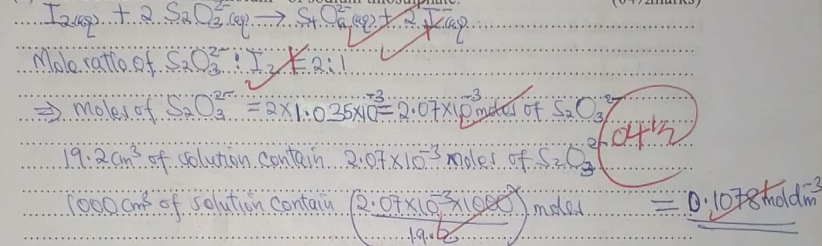 of sodium thiosulphate. (04½marks)
I₂(aq) + 2 S₂O₃²⁻(aq) → S₄O₆²⁻(aq) + 2I⁻(aq)
Mole ratio of S₂O₃²⁻ : I₂ = 2:1
⇒ moles of S₂O₃²⁻ = 2×1.035×10⁻³ = 2.07×10⁻³ moles of S₂O₃²⁻
04½
19.2cm³ of solution contain 2.07×10⁻³ moles of S₂O₃²⁻
1000cm³ of solution contain (2.07×10⁻³×1000 / 19.2) moles = 0.1078moldm⁻³